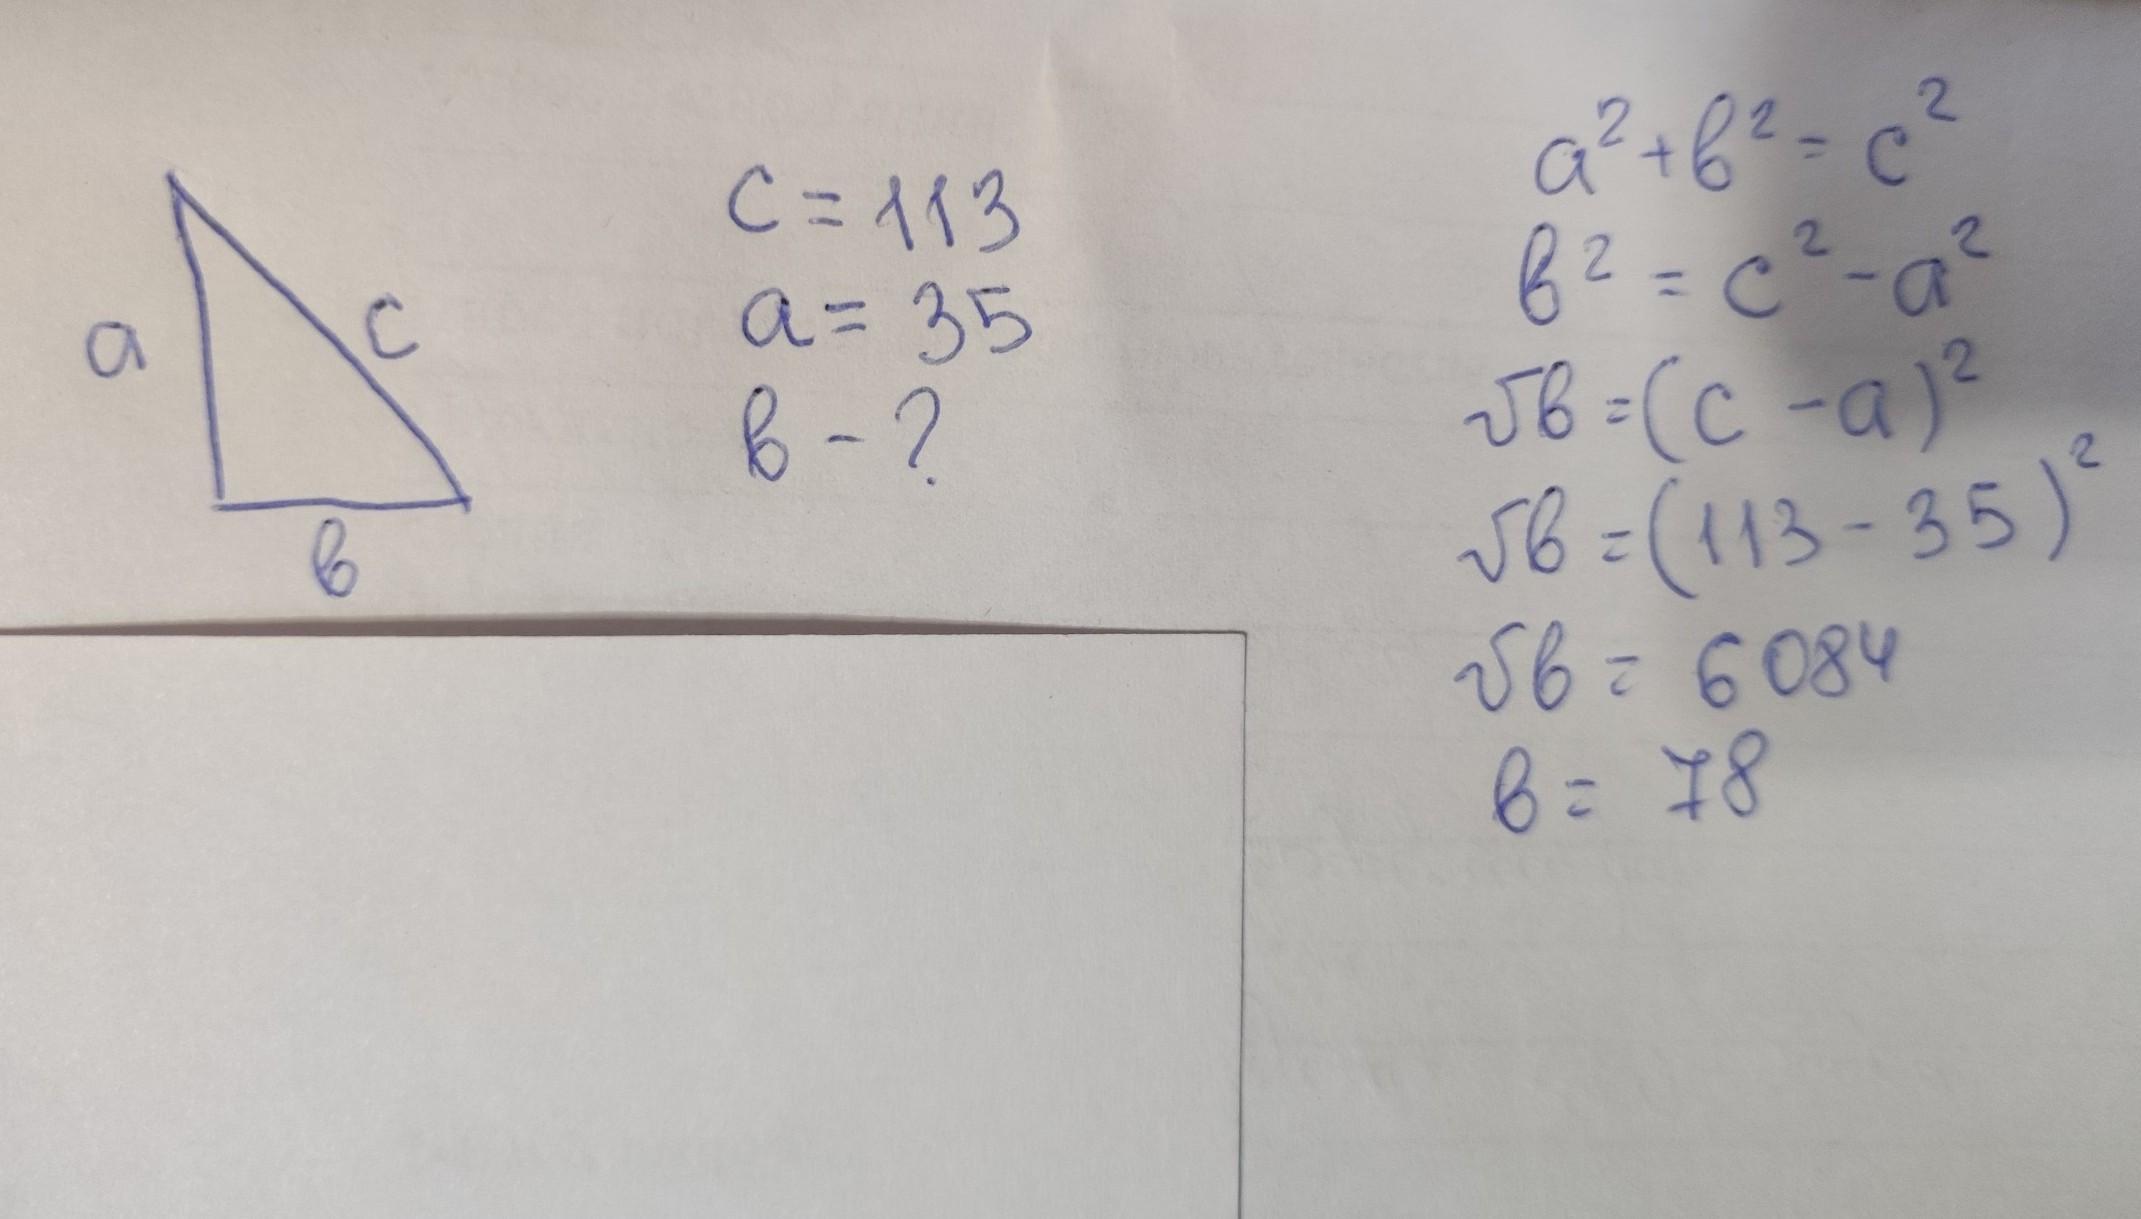 a
c
в
c = 113
a = 35
в - ?
a² + в² = c²
в² = c² - a²
√в = (c - a)²
√в = (113 - 35)²
√в = 6084
в = 78